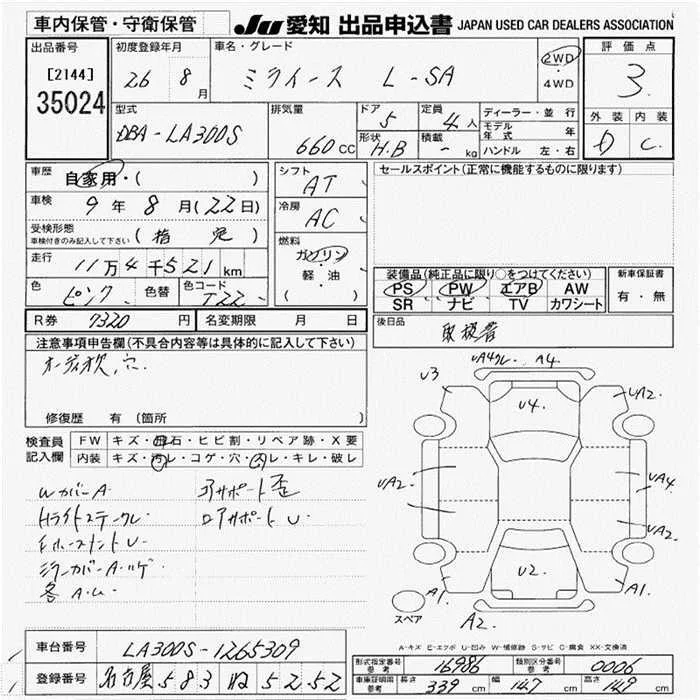 車内保管・守衛保管
JU 愛知 出品申込書 JAPAN USED CAR DEALERS ASSOCIATION
出品番号
[2144]
35024
初度登録年月
26 8月
車名・グレード
ミライース L-SA
2WD
・
4WD
評価点
3
外装 内装
D C
型式
DBA-LA300S
排気量
660cc
ドア
5
定員
4人
形状
H.B
積載
- kg
ディーラー・並行
モデル年式 年
ハンドル 左・右
車歴
自家用・( )
車検
9年8月(22日)
受検形態
車検付きのみ記入して下さい
(指定)
走行
11万4千521km
色
ピンク
色替
色コード
T22
シフト
AT
冷房
AC
燃料
ガソリン
・
軽・油
( )
セールスポイント(正常に機能するものに限ります)
装備品(純正品に限り○をつけてください)
PS PW エアB AW
SR ナビ TV カワシート
新車保証書
有・無
R券 7320円
名変期限 月 日
後日品
取扱書
注意事項申告欄(不具合内容等は具体的に記入して下さい)
オーディオ欠、穴、
修復歴 有(箇所 )
検査員
記入欄
FW キズ・飛石・ヒビ割・リペア跡・X要
内装 キズ・汚レ・コゲ・穴・スレ・キレ・破レ
WカバーA
コアサポート歪
ロアサポートU
ミラーカバーA・ハゲ
各A・U
UA4クレ A4
U3
U4
UA2
UA2
UA4
UA2
U2
A1
A1
A2
スペア
A-キズ E-エクボ U-凹み W-補修跡 S-サビ C-腐食 XX-交換済
車台番号 LA300S-1265309
登録番号 名古屋 583 ね 5252
形式指定番号 参考 16986
類別区分番号 参考 0006
車庫証明用 参考 長さ 339cm 幅 147cm 高さ 149cm